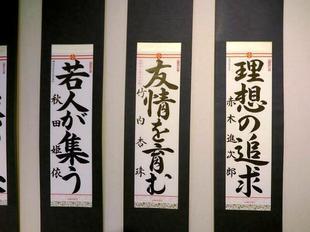 理想の追求
赤木進次郎
友情を育む
竹内杏珠
若人が集う
秋田姫依